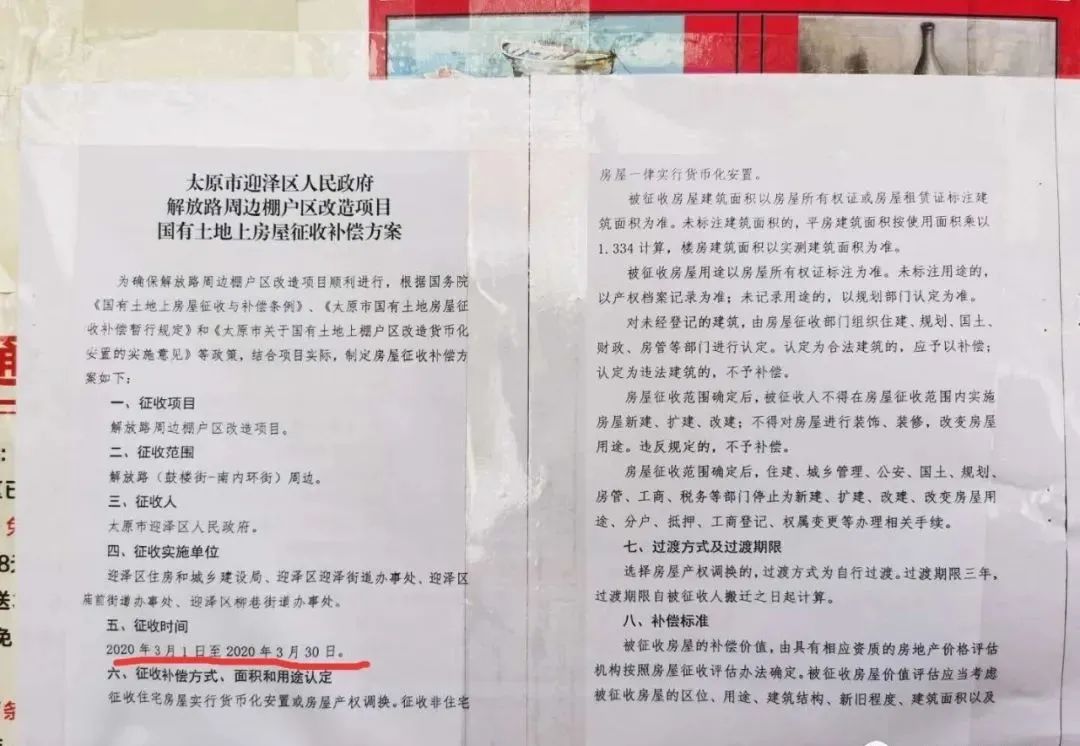 太原市迎泽区人民政府
解放路周边棚户区改造项目
国有土地上房屋征收补偿方案
为确保解放路周边棚户区改造项目顺利进行，根据国务院
《国有土地上房屋征收与补偿条例》、《太原市国有土地房屋征
收补偿暂行规定》和《太原市关于国有土地上棚户区改造货币化
安置的实施意见》等政策，结合项目实际，制定房屋征收补偿方
案如下：
一、征收项目
解放路周边棚户区改造项目。
二、征收范围
解放路（鼓楼街-南内环街）周边。
三、征收人
太原市迎泽区人民政府。
四、征收实施单位
迎泽区住房和城乡建设局、迎泽区迎泽街道办事处、迎泽区
庙前街道办事处、迎泽区柳巷街道办事处。
五、征收时间
2020年3月1日至2020年3月30日。
六、征收补偿方式、面积和用途认定
征收住宅房屋实行货币化安置或房屋产权调换。征收非住宅
房屋一律实行货币化安置。
被征收房屋建筑面积以房屋所有权证或房屋租赁证标注建
筑面积为准。未标注建筑面积的，平房建筑面积按使用面积乘以
1.334计算，楼房建筑面积以实测建筑面积为准。
被征收房屋用途以房屋所有权证标注为准。未标注用途的，
以产权档案记录为准；未记录用途的，以规划部门认定为准。
对未经登记的建筑，由房屋征收部门组织住建、规划、国土、
财政、房管等部门进行认定。认定为合法建筑的，应予以补偿；
认定为违法建筑的，不予补偿。
房屋征收范围确定后，被征收人不得在房屋征收范围内实施
房屋新建、扩建、改建；不得对房屋进行装饰、装修，改变房屋
用途。违反规定的，不予补偿。
房屋征收范围确定后，住建、城乡管理、公安、国土、规划、
房管、工商、税务等部门停止为新建、扩建、改建、改变房屋用
途、分户、抵押、工商登记、权属变更等办理相关手续。
七、过渡方式及过渡期限
选择房屋产权调换的，过渡方式为自行过渡。过渡期限三年，
过渡期限自被征收人搬迁之日起计算。
八、补偿标准
被征收房屋的补偿价值，由具有相应资质的房地产价格评估
机构按照房屋征收评估办法确定。被征收房屋价值评估应当考虑
被征收房屋的区位、用途、建筑结构、新旧程度、建筑面积以及